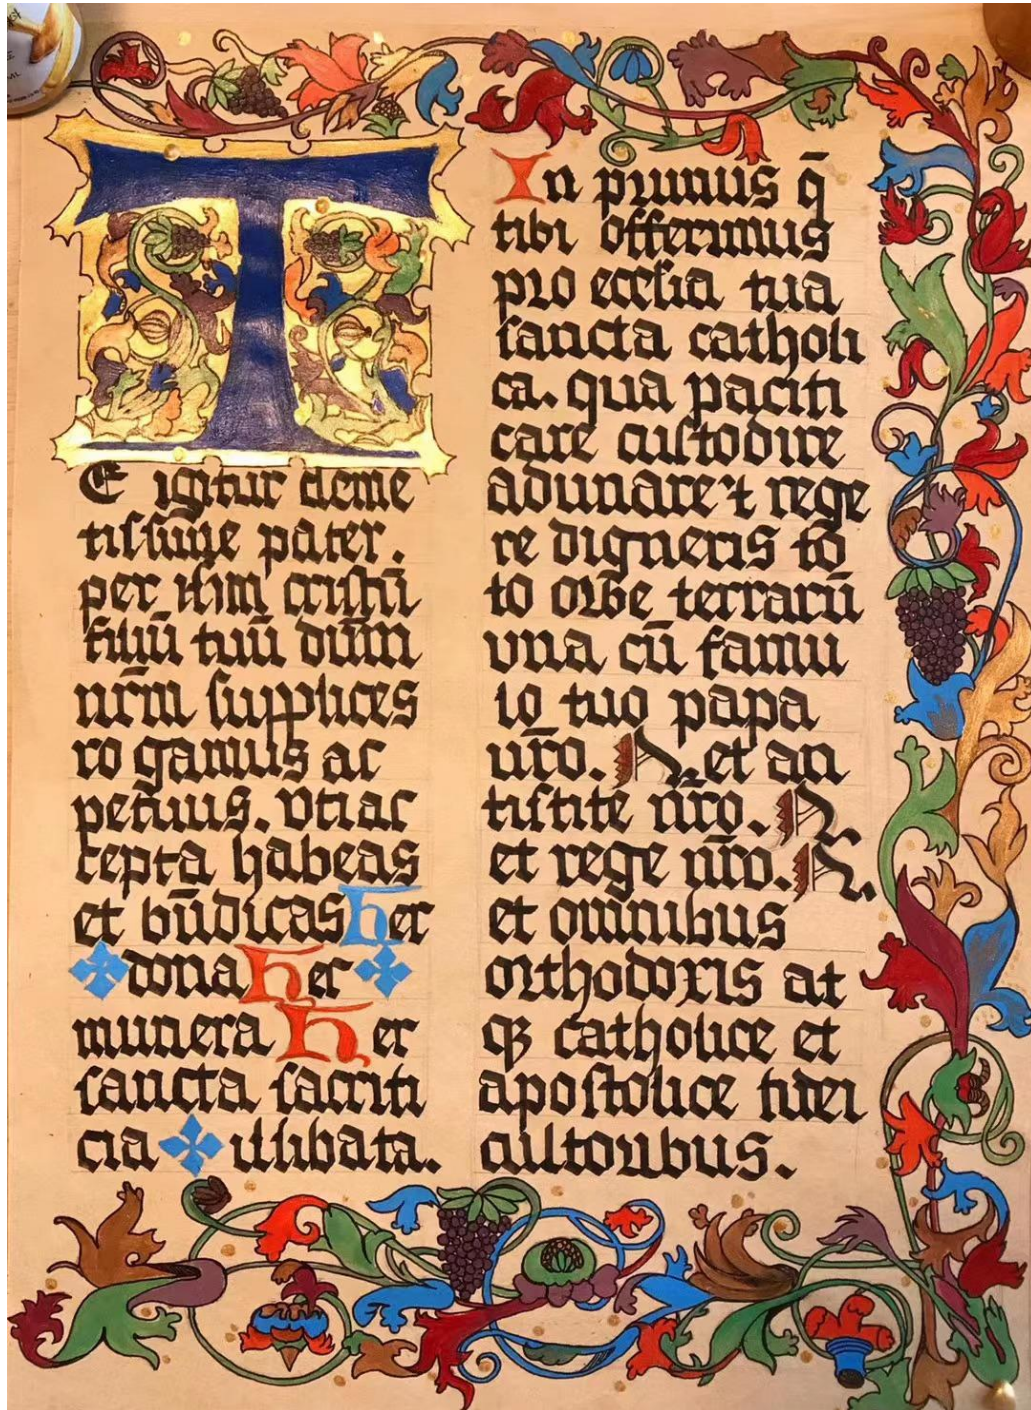 T
E igitur cleme
tissime pater.
per ihm cristū
filiū tuū dūm
nr̄m supplices
ro gamus ac
petim̄us. Vti ac
cepta habeas
et bn̄dicas her
dona her
munera her
sancta sacrifi
cia illibata.
In primis q̄
tibi offerimus
pro ecclesia tua
sancta catholi
ca. qua pacifi
care custodire
adunare ⁊ rege
re digneris to
to orbe terrarū
vna cū famu
lo tuo papa
nr̄o. N. et an
tistite nr̄o. N.
et rege nr̄o. N.
et omnibus
orthodoxis at
qꝫ catholice et
apostolice fidei
cultoribus.